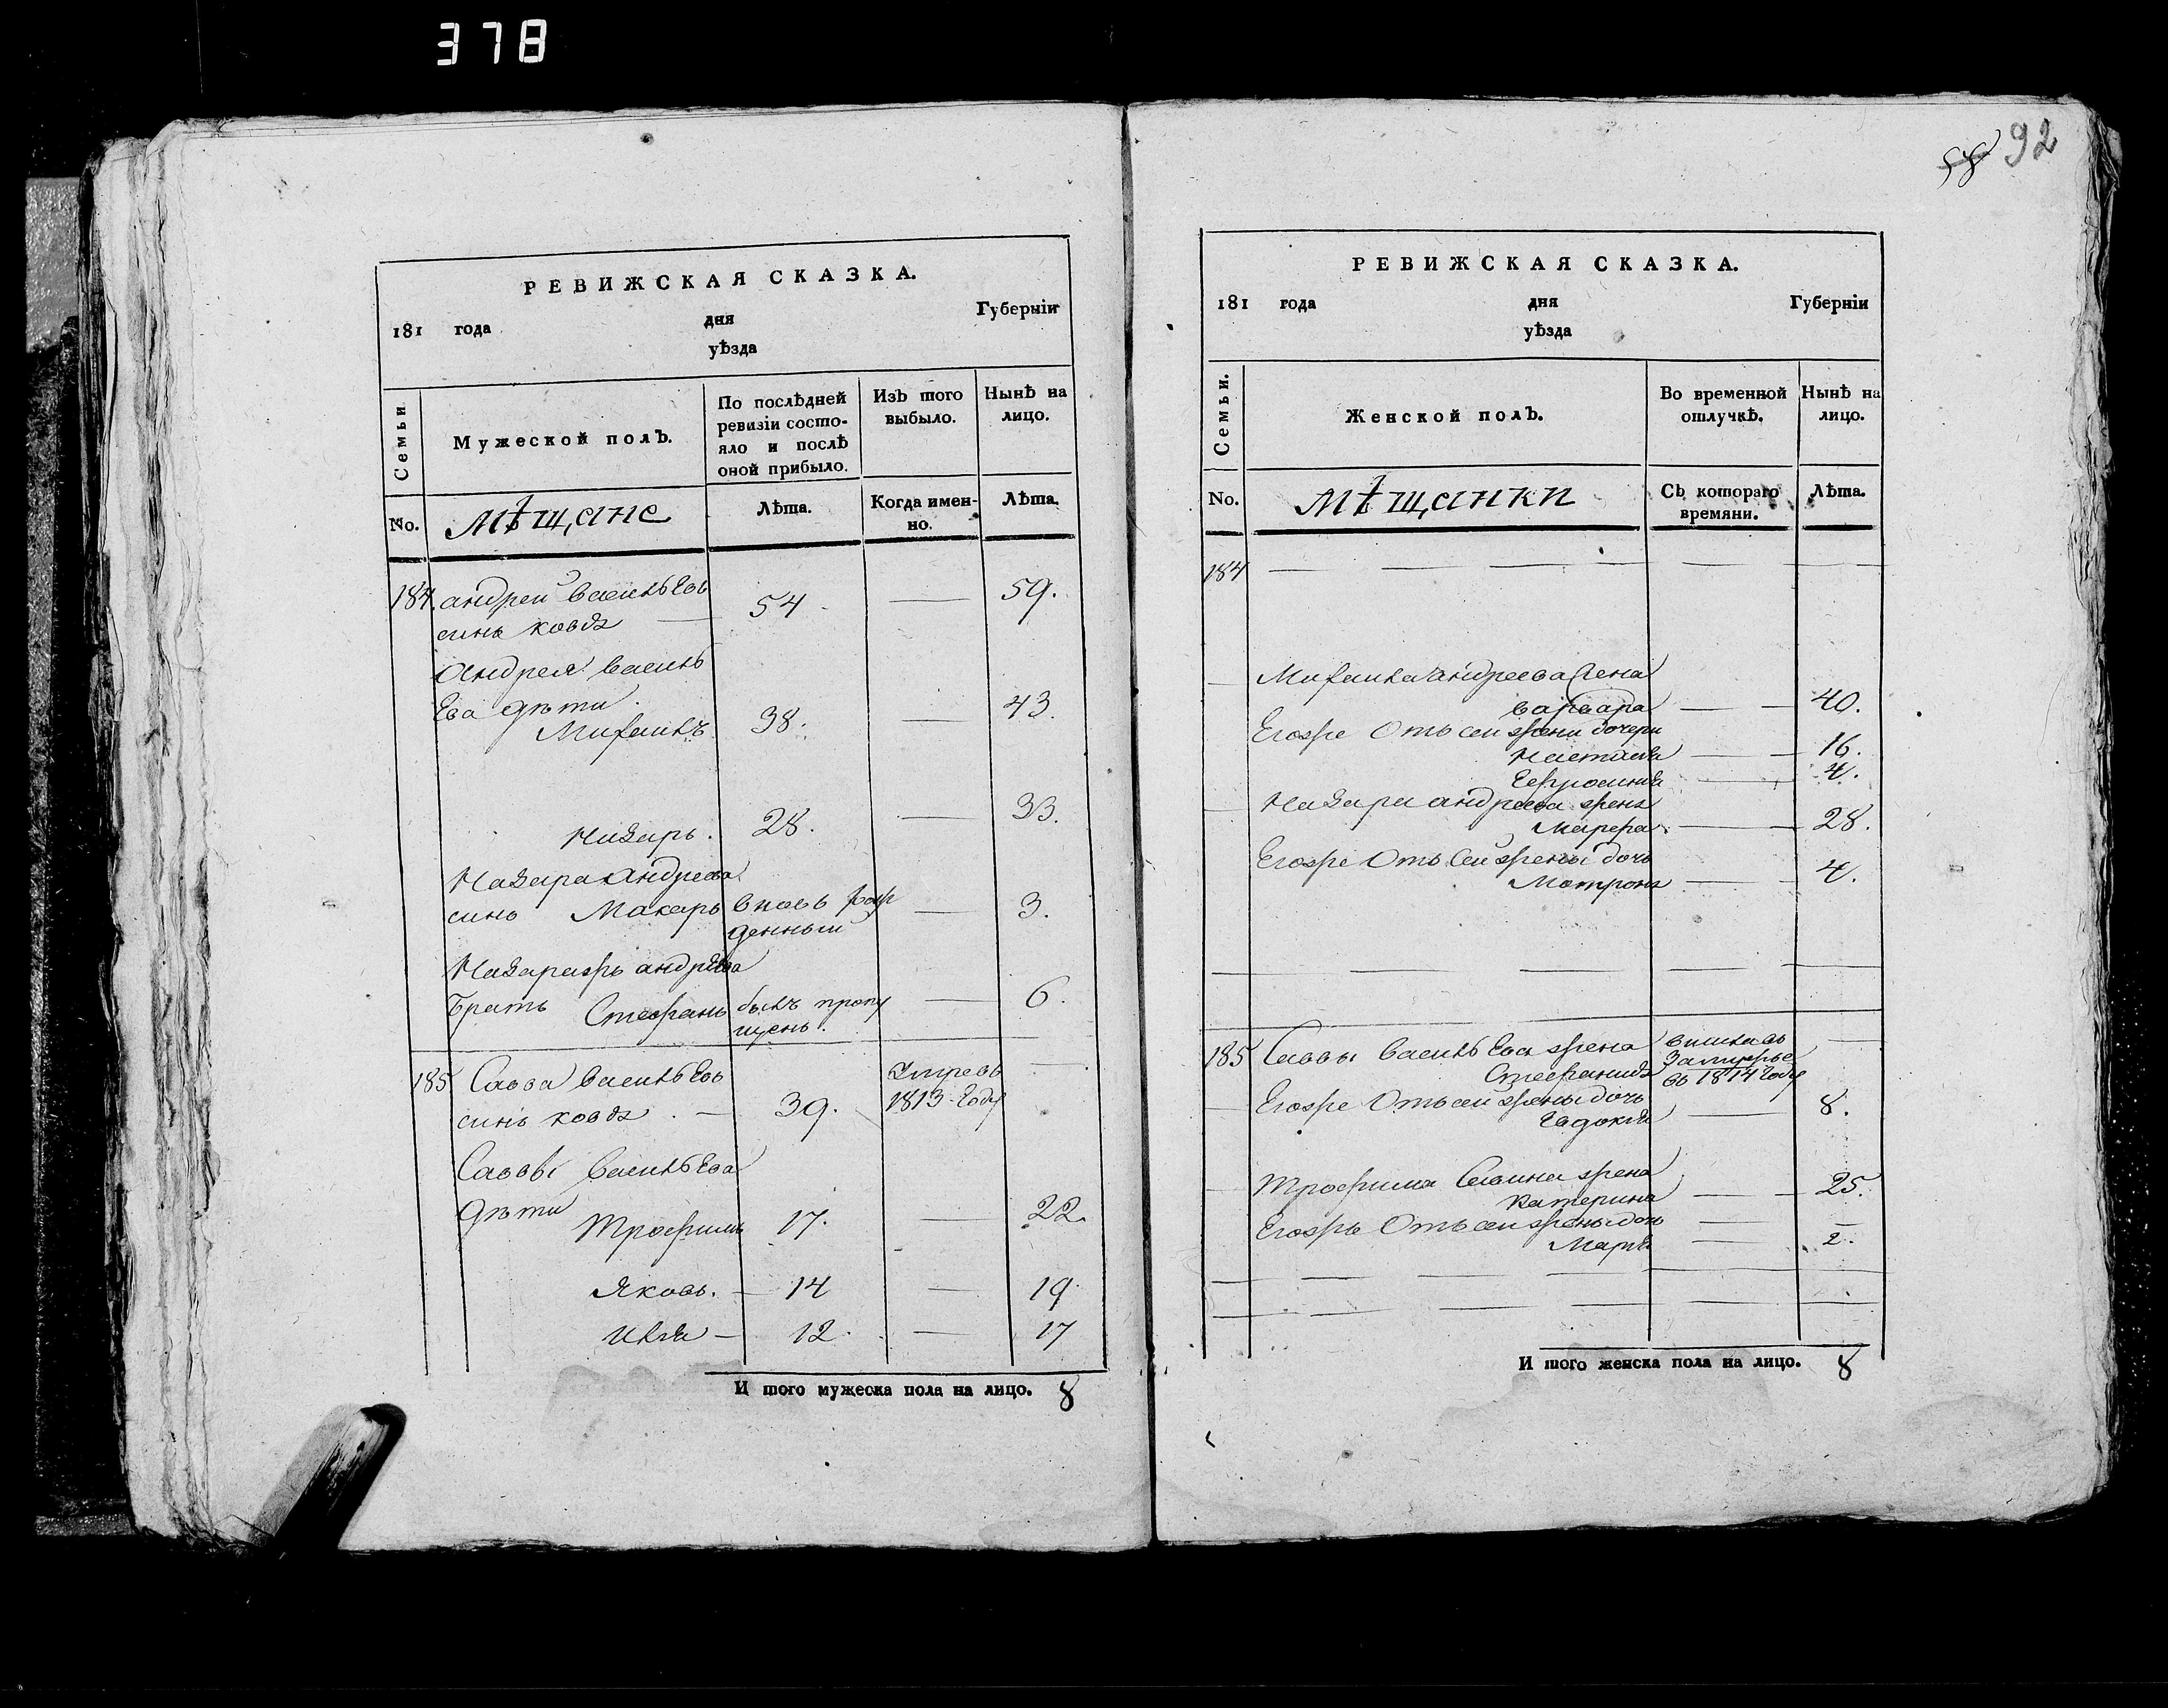 378
РЕВИЖСКАЯ СКАЗКА.
181 года дня Губернїи
уѣзда
Семьи
Мужеской полъ.
По послѣдней
ревизїи состо-
яло и послѣ
оной прибыло.
Изъ того
выбыло.
Нынѣ на
лицо.
No.
мѣщане
Лѣта.
Когда имен-
но.
Лѣта.
184. андрей василь Евъ
синъ ковдя — 54 — 59.
Андрея василь
Ева дѣти.
Михаилъ 38. — 43.
Назаръ. 28. — 33.
Назара андреева
синъ Макаръ вновь рож
денный — 3.
Назара жъ андрѣева
Братъ Стефанъ былъ пропу
щенъ. — 6.
185 Савва василь Евъ
синъ ковдя. — 39. умревъ
1813 году —
Саввы василь Ева
дѣти
Трофимъ 17. — 22.
Яковъ. — 14 — 19.
Илля — 12. — 17
И того мужеска пола на лицо. 8
58 92
РЕВИЖСКАЯ СКАЗКА.
181 года дня Губернїи
уѣзда
Семьи.
Женской полъ.
Во временной
отлучкѣ.
Нынѣ на
лицо.
No.
мѣщанки
Съ котораго
времяни.
Лѣта.
184 — — — — —
Михаила андреева жена
варвара — — 40.
Егожре Отъ сей жени дочери
Настасія — — 16.
Еефросинія — 4.
Назара андреева жена
Марфа. — — 28.
Егожре Отъ сей жены дочь
Матрона — 4.
185 Саввы василь Ева жена
Стефанида
вишла въ
Замужье
въ 1814 году —
Егожре Отъ сей жены дочь
Евдокія — 8.
Трофима Савина жена
Катерина — — 25.
Егожъ Отъ сей жены дочь
Марія — 2.
И того женска пола на лицо. 8